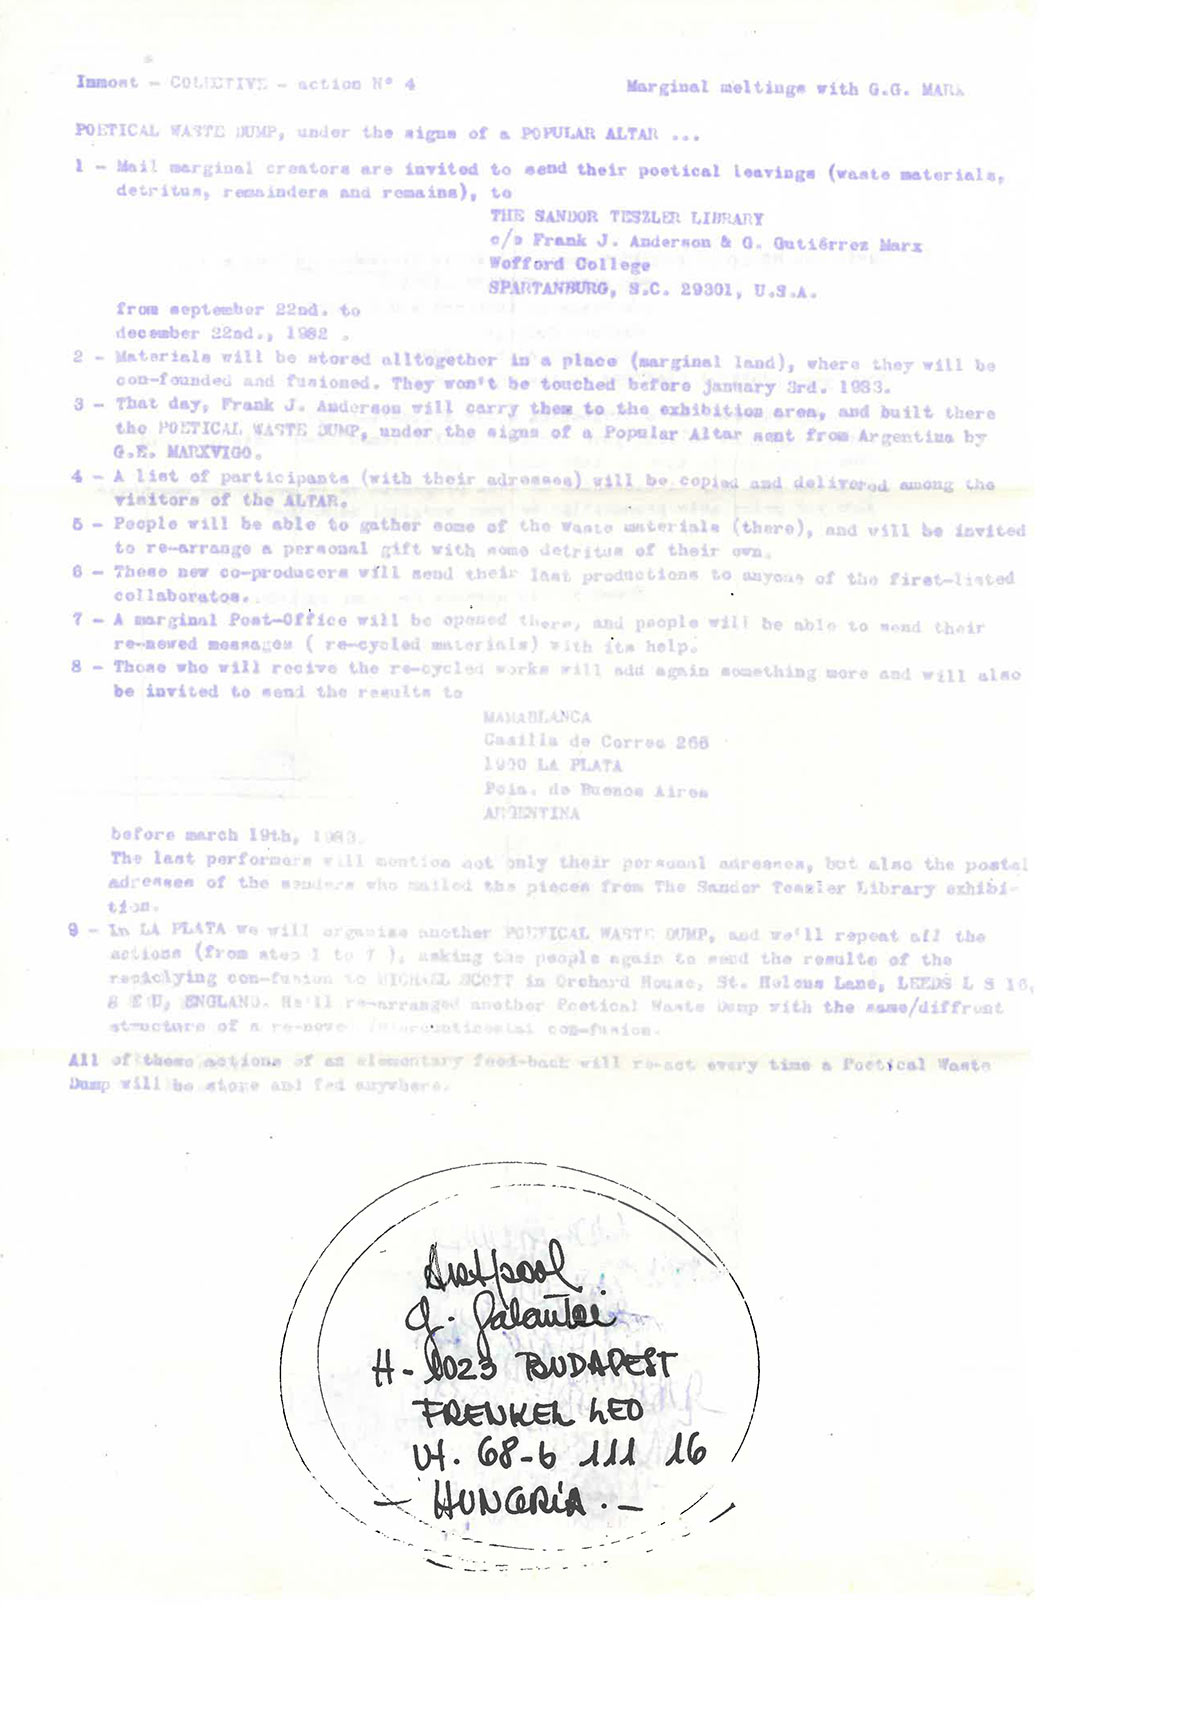 Inmost - COLECTIVE - action Nº 4
Marginal meltings with G.G. MARX
POETICAL WASTE DUMP, under the signs of a POPULAR ALTAR ...
1 - Mail marginal creators are invited to send their poetical leavings (waste materials,
detritus, remainders and remains), to
THE SANDOR TESZLER LIBRARY
c/o Frank J. Anderson & G. Gutiérrez Marx
Wofford College
SPARTANBURG, S.C. 29301, U.S.A.
from september 22nd. to
december 22nd., 1982 .
2 - Materials will be stored alltogether in a place (marginal land), where they will be
con-founded and fusioned. They won't be touched before january 3rd. 1983.
3 - That day, Frank J. Anderson will carry them to the exhibition area, and built there
the POETICAL WASTE DUMP, under the signs of a Popular Altar sent from Argentina by
G.E. MARXVIGO.
4 - A list of participants (with their adresses) will be copied and delivered among the
visitors of the ALTAR.
5 - People will be able to gather some of the waste materials (there), and will be invited
to re-arrange a personal gift with some detritus of their own.
6 - These new co-producers will send their last productions to anyone of the first-listed
collaboratos.
7 - A marginal Post-Office will be opened there, and people will be able to send their
re-newed messages ( re-cycled materials) with its help.
8 - Those who will recive the re-cycled works will add again something more and will also
be invited to send the results to
MAMABLANCA
Casilla de Correo 266
1900 LA PLATA
Pcia. de Buenos Aires
ARGENTINA
before march 19th, 1983.
The last performers will mention not only their personal adresses, but also the postal
adresses of the senders who mailed the pieces from The Sandor Teszler Library exhibi-
tion.
9 - In LA PLATA we will organise another POETICAL WASTE DUMP, and we'll repeat all the
actions (from step 1 to 7 ), asking the people again to send the results of the
con-fusion to MICHAEL SCOTT in Orchard House, St. Helens Lane, LEEDS L S 16,
8 E U, ENGLAND. He'll re-arranged another Poetical Waste Dump with the same/diffrent
structure of a con-fusion.
All of these actions of an elementary feed-back will re-act every time a Poetical Waste
Dump will be store and fed anywhere.
Artpool
G. Galántai
H - 1023 BUDAPEST
FRENKEL LEO
UT. 68-b 111 16
- HUNGRIA . -